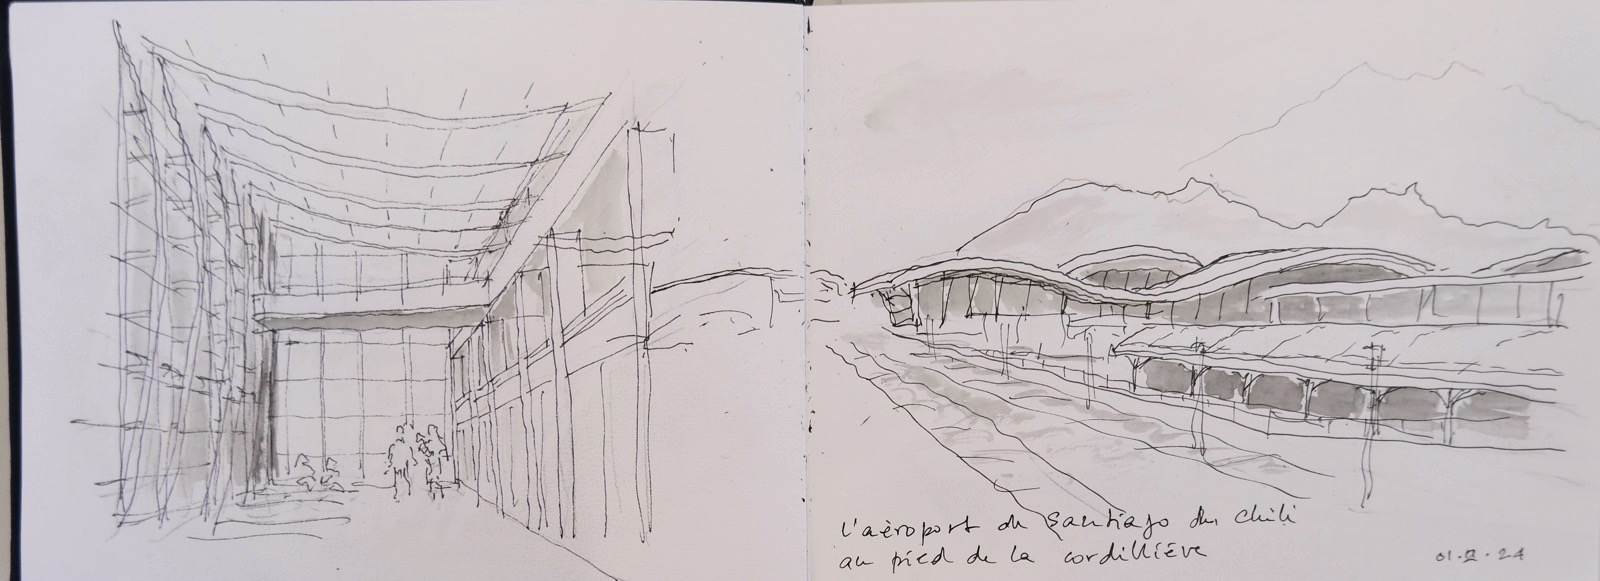 L'aéroport de Santiago du Chili
au pied de la cordillière
01.II.24